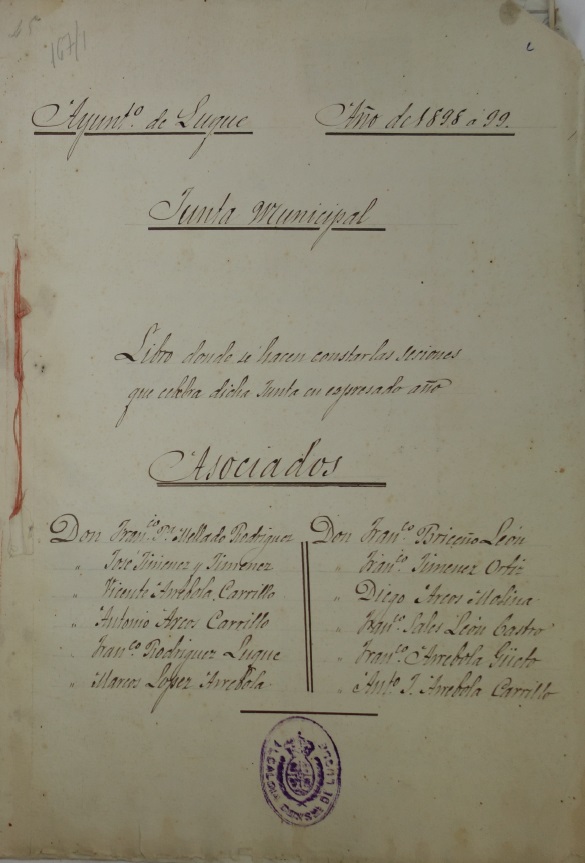 167/1
Ayuntº. de Luque Año de 1898 á 99.
Junta Municipal
Libro donde se hacen constar las seciones
que celebra dicha Junta en espresado año
Asociados
Don Fran.co Pª Mellado Rodriguez
" José Jimenez y Jimenez
" Vicente Arrebola Carrillo
" Antonio Arcos Carrillo
" Fran.co Rodriguez Luque
" Marcos Lopez Arrebola
Don Fran.co Briceño León
" Fran.co Jimenez Ortiz
" Diego Arcos Molina
" Fran.co Sales León Castro
" Fran.co Arrebola Güeto
" Ant.º J. Arrebola Carrillo
ALCALDIA CONSTL DE LUQUE